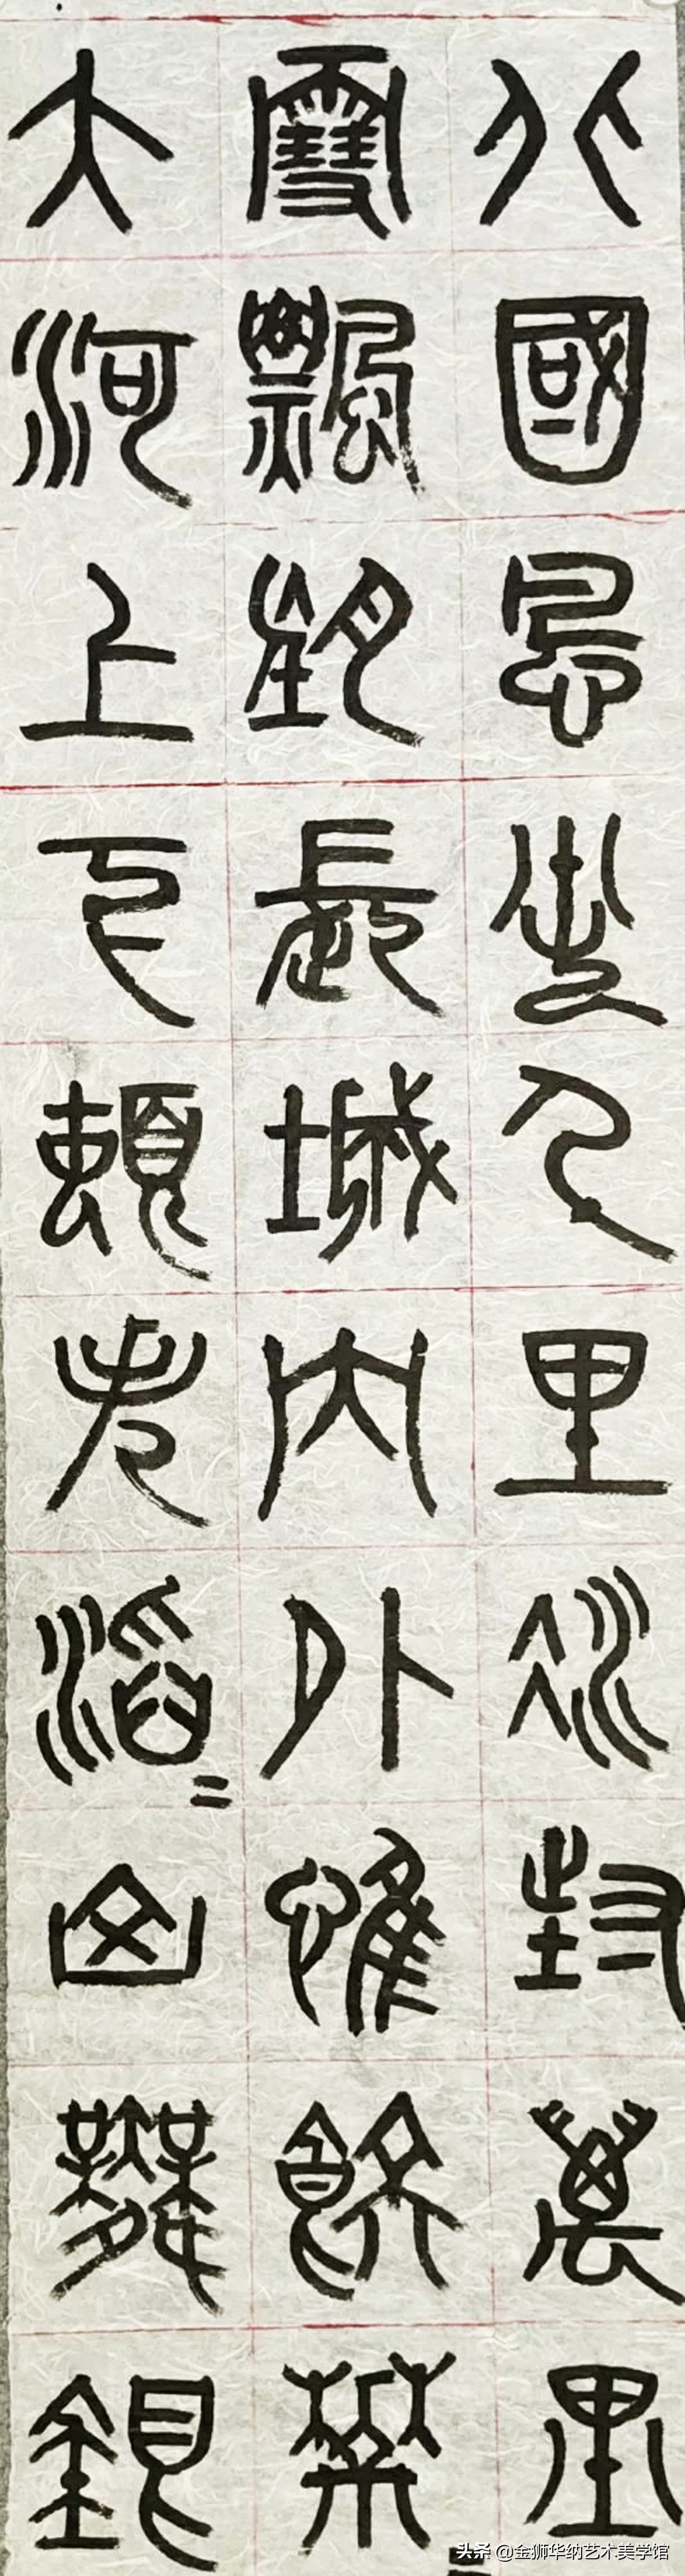 北國風光千里冰封萬里
雪飄望長城內外惟餘莽=
大河上下頓失滔=山舞銀
头条 @金狮华纳艺术美学馆